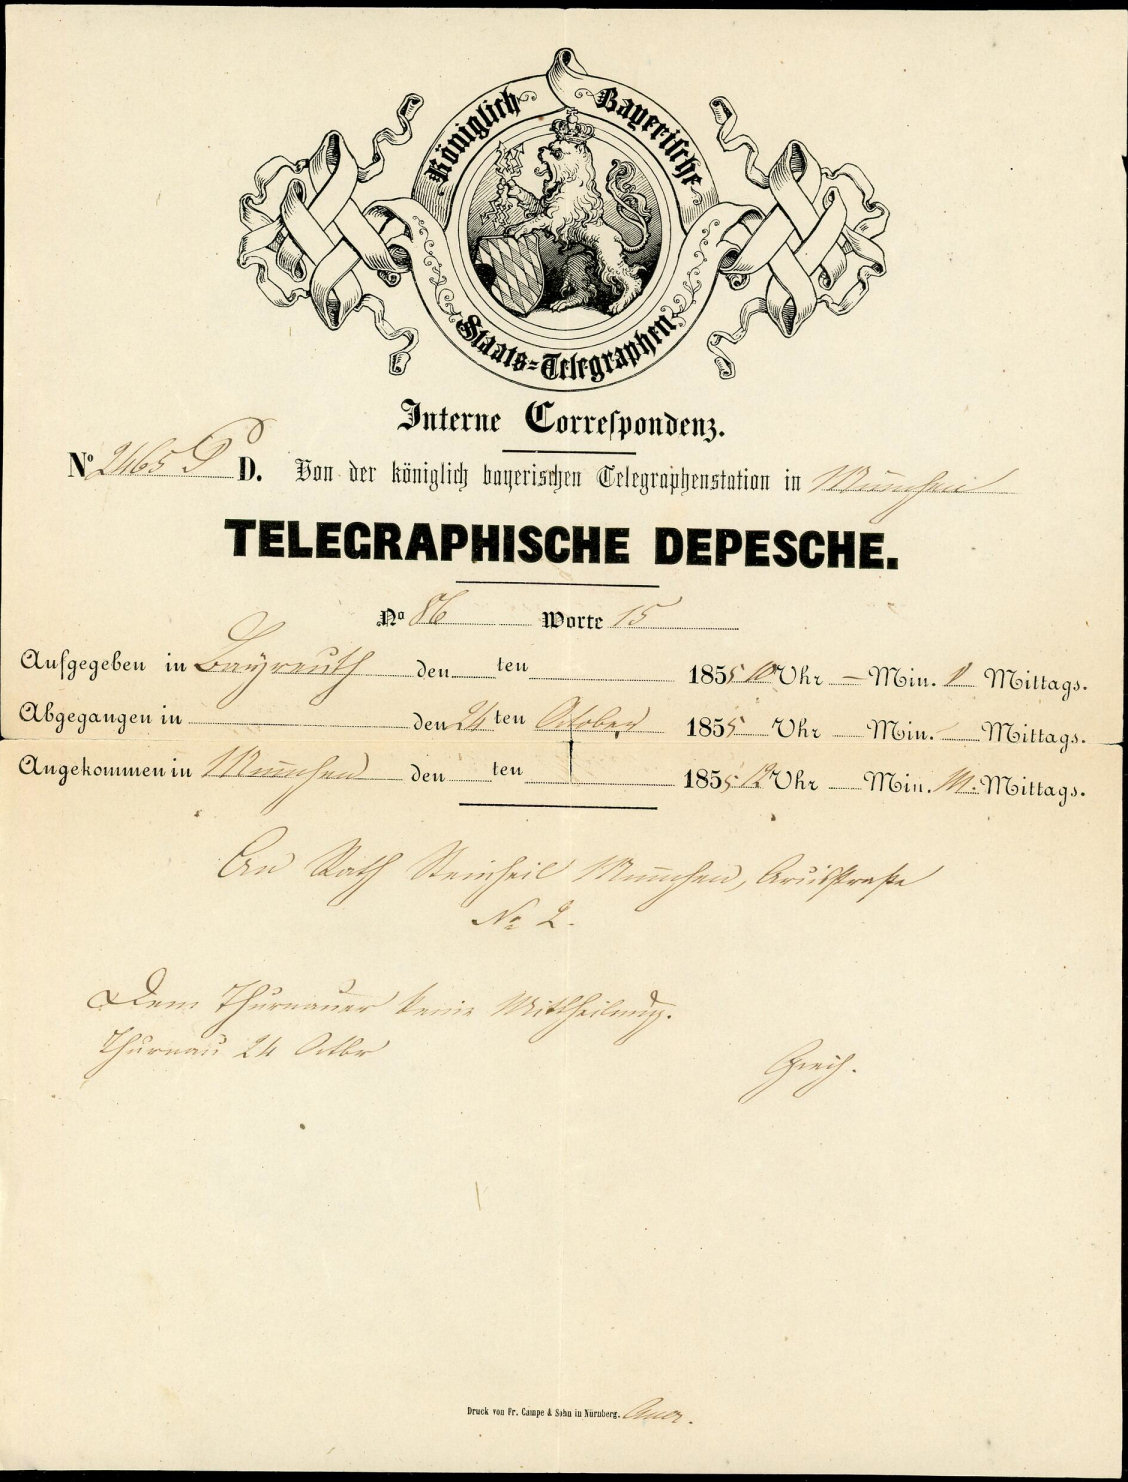 Königlich Bayerische
Staats=Telegraphen
Interne Correspondenz.
No. 2465 D. Von der königlich bayerischen Telegraphenstation in München
TELEGRAPHISCHE DEPESCHE.
No 86 Worte 15
Aufgegeben in Bayreuth den ten 1855 10 Uhr – Min. V Mittags.
Abgegangen in den 24 ten October 1855 Uhr Min. Mittags.
Angekommen in München den ten 1855 12 Uhr Min. M. Mittags.
An Rath Steinheil München, Arcisstraße
No 2.
Dem Thurnauer keine Mittheilung.
Thurnau 24 Octbr
Druck von Fr. Campe & Sohn in Nürnberg.